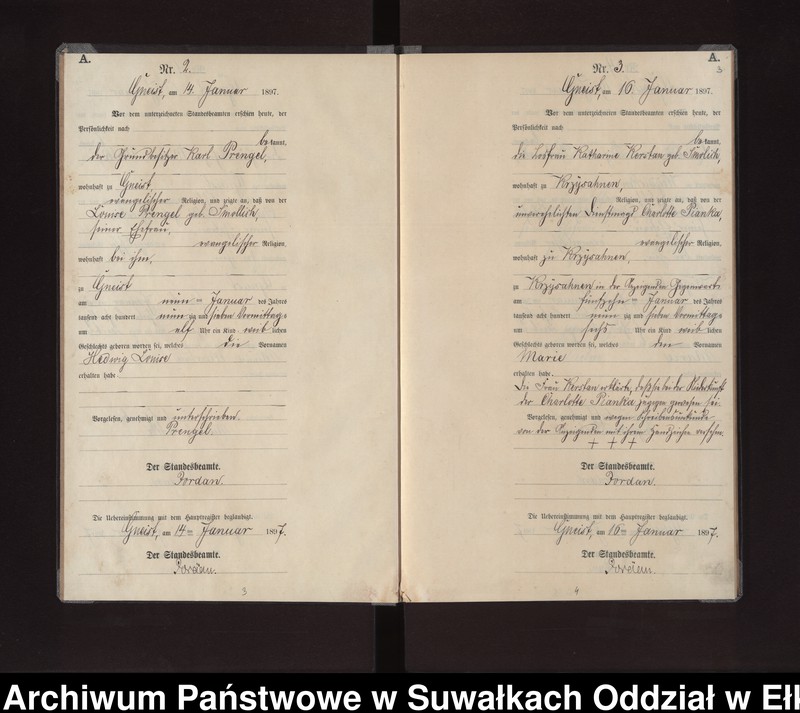 A.
Nr. 2.
Gneist, am 14. Januar 1897.
Vor dem unterzeichneten Standesbeamten erschien heute, der
Persönlichkeit nach
bekannt,
der Grundbesitzer Karl Prengel,
wohnhaft zu Gneist,
evangelischer Religion, und zeigte an, daß von der
Louise Prengel geb. Smollich,
seiner Ehefrau,
evangelischer Religion,
wohnhaft bei ihm,
zu Gneist
am neun ten Januar des Jahres
tausend acht hundert neunzig und sieben Vormittags
um elf Uhr ein Kind weiblichen
Geschlechts geboren worden sei, welches die Vornamen
Hedwig Louise
erhalten habe.
Vorgelesen, genehmigt und unterschrieben.
Prengel.
Der Standesbeamte.
Jordan.
Die Uebereinstimmung mit dem Hauptregister beglaubigt.
Gneist, am 14 ten Januar 1897.
Der Standesbeamte.
Jordan.
3
A.
3
Nr. 3.
Gneist, am 16. Januar 1897.
Vor dem unterzeichneten Standesbeamten erschien heute, der
Persönlichkeit nach
bekannt,
die Losfrau Katharine Kerstan geb. Smolich,
wohnhaft zu Krzysahnen,
Religion, und zeigte an, daß von der
unverehelichten Dienstmagd Charlotte Pianka,
evangelischer Religion,
wohnhaft zu Krzysahnen,
zu Krzysahnen in der Anzeigenden Gegenwart
am fünfzehn ten Januar des Jahres
tausend acht hundert neunzig und sieben Vormittags
um sechs Uhr ein Kind weiblichen
Geschlechts geboren worden sei, welches den Vornamen
Marie
erhalten habe.
Die Frau Kerstan erklärte, daß sie bei der Niederkunft
der Charlotte Pianka zugegen gewesen sei.
Vorgelesen, genehmigt und wegen Schreibensunkunde
von der Anzeigenden mit ihrem Handzeichen versehen.
+ + +
Der Standesbeamte.
Jordan.
Die Uebereinstimmung mit dem Hauptregister beglaubigt.
Gneist, am 16 ten Januar 1897.
Der Standesbeamte.
Jordan.
4
Archiwum Państwowe w Suwałkach Oddział w Ełk